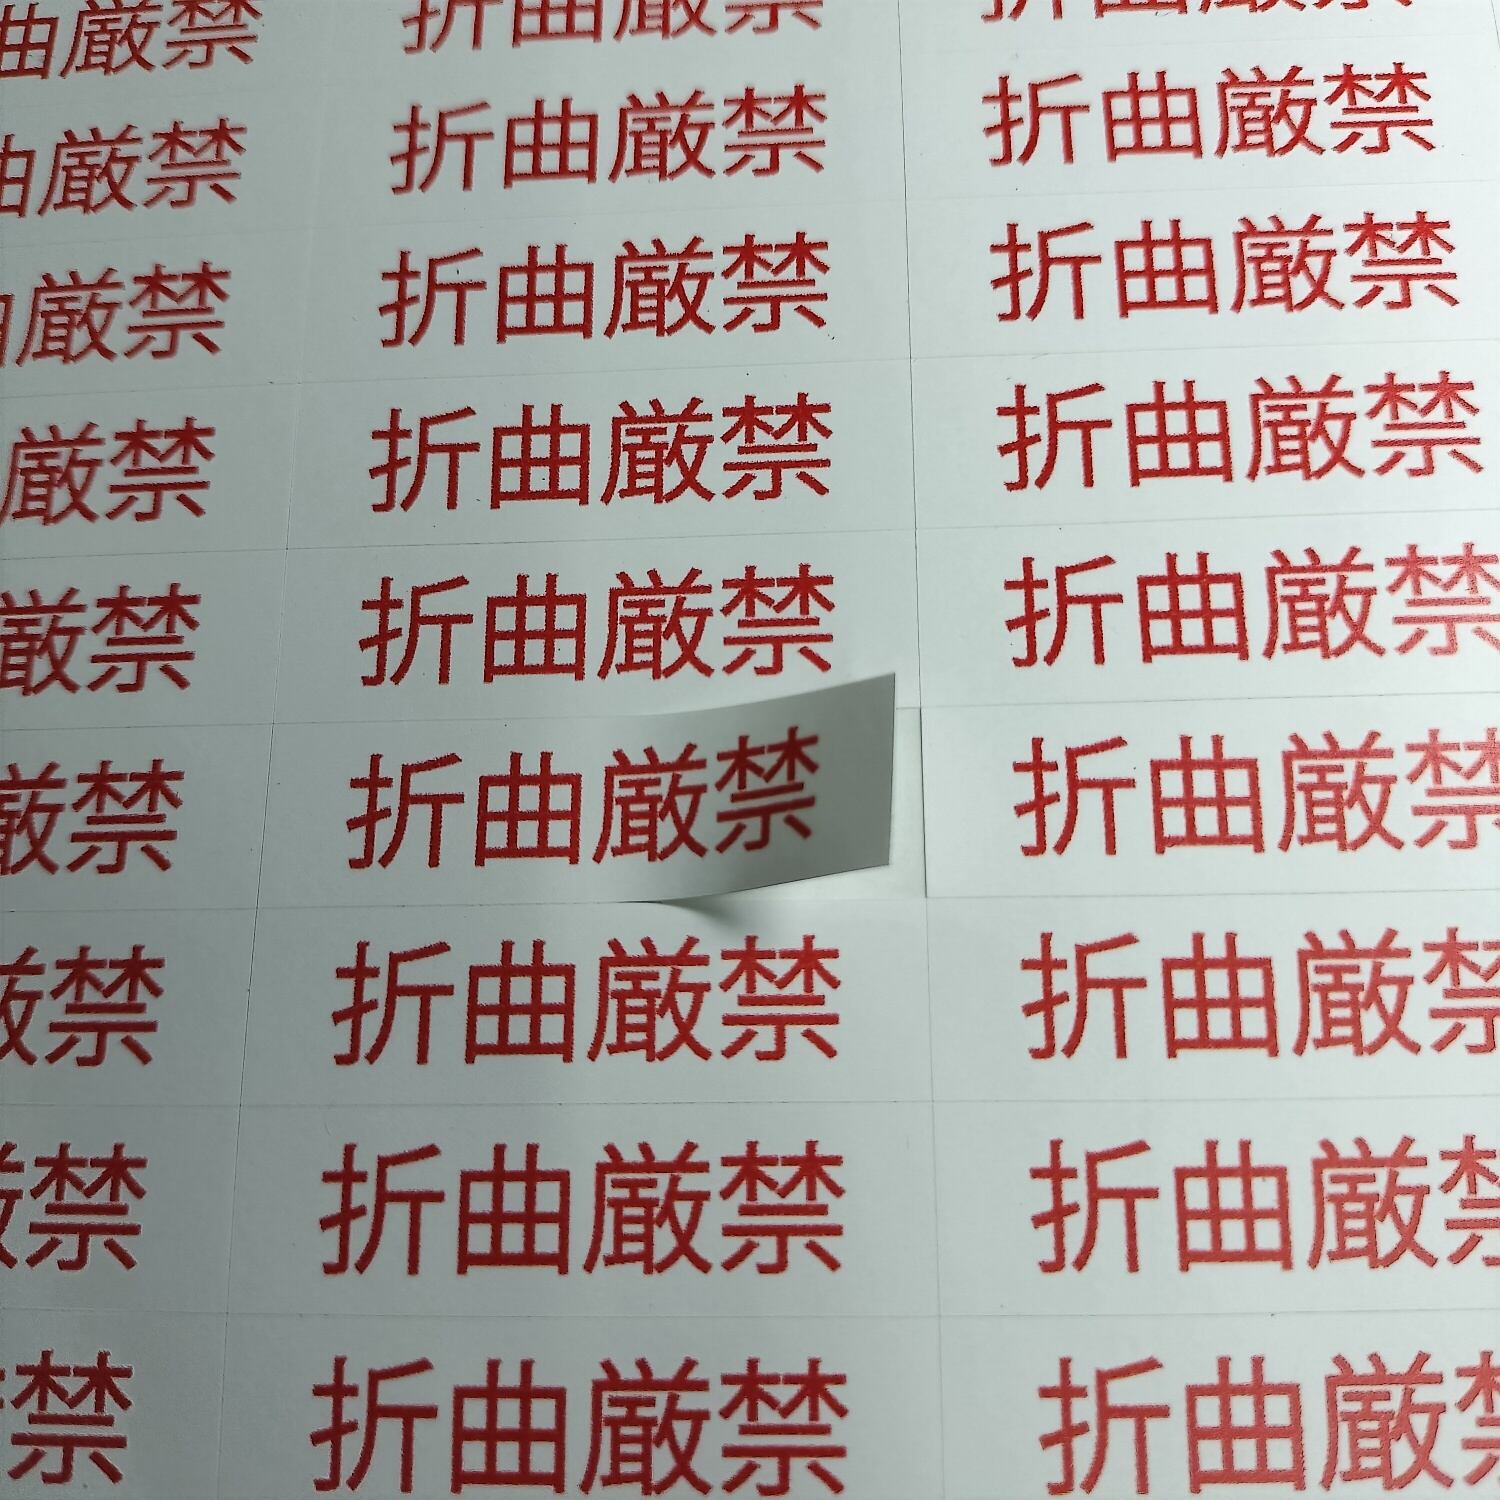 曲厳禁
折曲厳禁
折曲厳禁
曲厳禁
折曲厳禁
折曲厳禁
厳禁
折曲厳禁
折曲厳禁
厳禁
折曲厳禁
折曲厳禁
厳禁
折曲厳禁
折曲厳禁
厳禁
折曲厳禁
折曲厳禁
厳禁
折曲厳禁
折曲厳禁
禁
折曲厳禁
折曲厳禁
禁
折曲厳禁
折曲厳